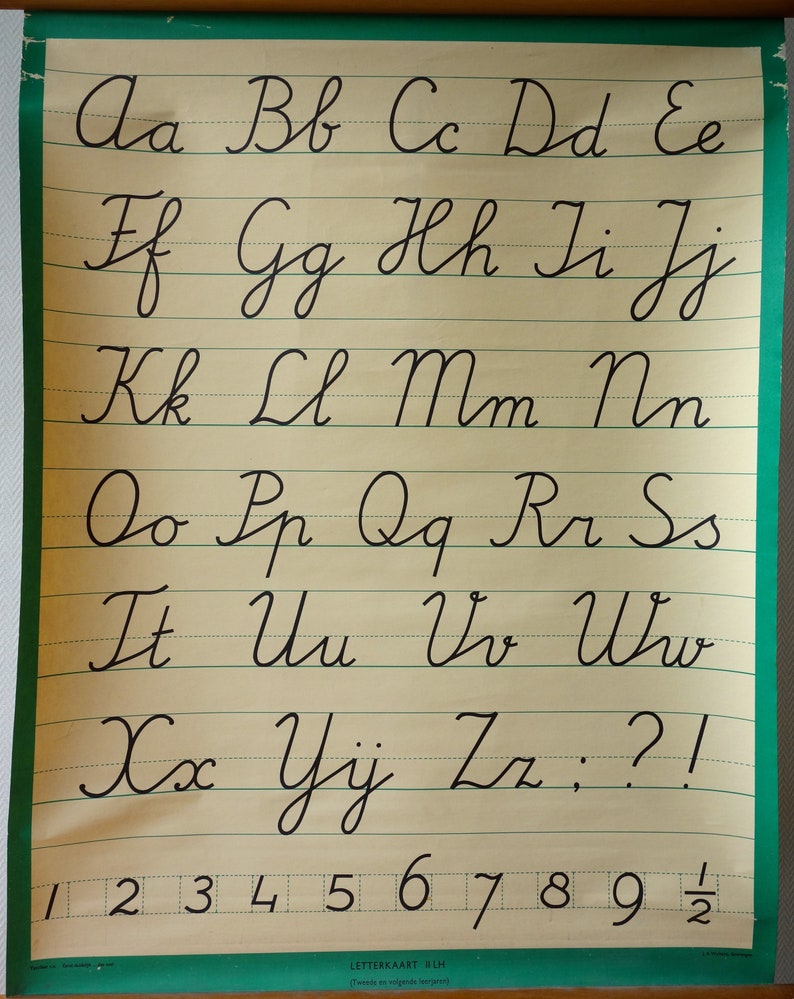 Aa Bb Cc Dd Ee
Ff Gg Hh Ii Jj
Kk Ll Mm Nn
Oo Pp Qq Rr Ss
Tt Uu Vv Ww
Xx Yÿ Zz ; ? !
1 2 3 4 5 6 7 8 9 ½
J. B. Wolters, Groningen
LETTERKAART II LH
(Tweede en volgende leerjaren)